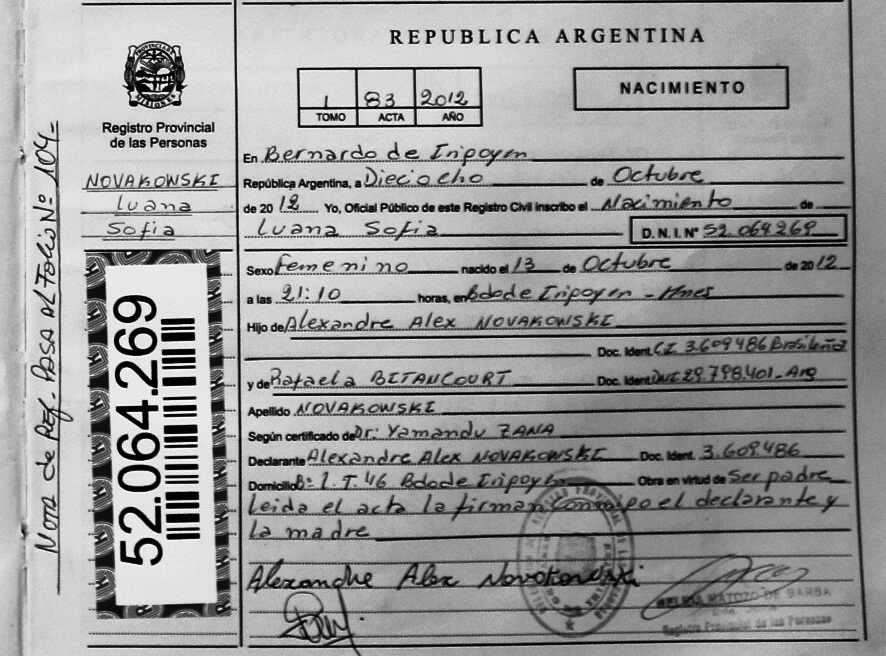 Nota de Ref. Pasa al Folio Nº 104-
Registro Provincial
de las Personas
NOVAKOWSKI
Luana
Sofia
52.064.269
REPUBLICA ARGENTINA
1 83 2012
TOMO ACTA AÑO
NACIMIENTO
En Bernardo de Iripoyen
República Argentina, a Dieciocho de Octubre
de 2012 Yo, Oficial Público de este Registro Civil inscribo el Nacimiento de
Luana Sofia D.N.I. Nº 52.064.269
Sexo Femenino nacido el 13 de Octubre de 2012
a las 21:10 horas, en Bdo de Iripoyen - Mnes
Hijo de Alexandre Alex NOVAKOWSKI
Doc. Ident. CI 3.609486 Brasileña
y de Rafaela BITANCOURT Doc. Ident. DNI 29.798.401-Arg
Apellido NOVAKOWSKI
Según certificado de Dr: Yamandu ZANA
Declarante Alexandre Alex NOVAKOWSKI Doc. Ident. 3.609486
Domicilio Bº I.T. 46 Bdo de Iripoyen Obra en virtud de Ser padre
Leida el acta la firman conmigo el declarante y
la madre
Alexandre Alex Novakowski
MATOZO DE BARBA
Registro Provincial de las Personas